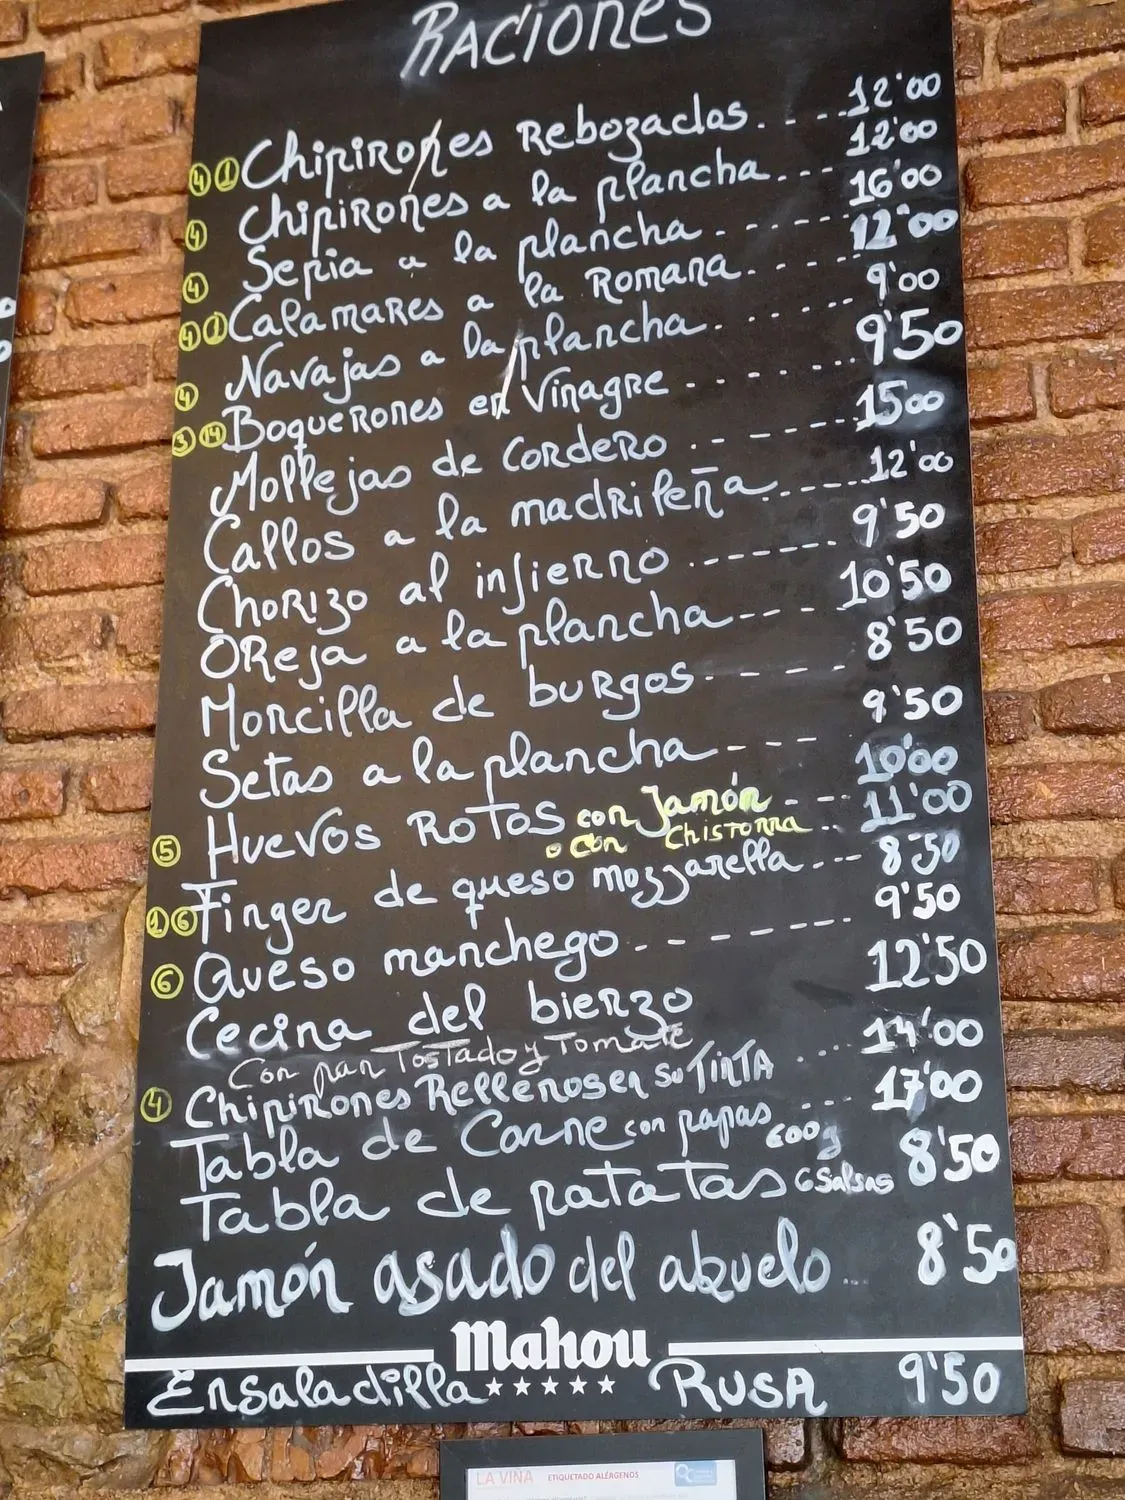 Raciones
4 1 Chipirones Rebozados.... 12'00
4 Chipirones a la plancha... 12'00
4 Sepia a la plancha.... 16'00
4 1 Calamares a la Romana..... 12'00
4 Navajas a la plancha...... 9'00
3 14 Boquerones en Vinagre ...... 9'50
Mollejas de Cordero ....... 15'00
Callos a la madrileña...... 12'00
Chorizo al infierno ...... 9'50
Oreja a la plancha---- 10'50
Morcilla de burgos---- 8'50
Setas a la plancha---- 9'50
5 Huevos Rotos con Jamón --- 10'00
o con Chistorra .. 11'00
1 6 Finger de queso mozzarella... 8'50
6 Queso manchego-------- 9'50
Cecina del bierzo 12'50
Con pan Tostado y Tomate
4 Chipirones Rellenos en su TinTA .... 14'00
Tabla de Carne con papas 600g ... 17'00
Tabla de patatas 6 Salsas 8'50
Jamón asado del abuelo.. 8'50
Mahou
Ensaladilla Rusa 9'50
LA VIÑA ETIQUETADO ALÉRGENOS